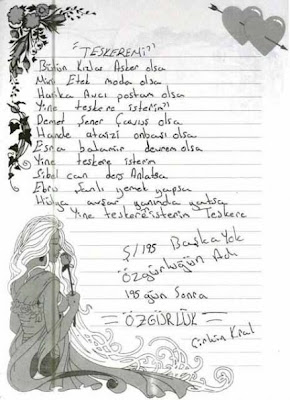 "TESKEREMİ"
Bütün Kızlar Asker olsa
Mini Etek moda olsa
Harika Avcı postam olsa
Yine teskere isterim"
Demet Şener Çavuş olsa
Hande ataizi onbaşı olsa
Esra balamir devrem olsa
Yine teskere isterim
Sibel can ders Anlatsa
Ebru Şanlı yemek yapsa
Hülya avşar yanında yatsa
Yine teskere isterim Teskere
Ş/195 Başka Yok
Özgürlüğün Adı
195 gün Sonra
= ÖZGÜRLÜK =
Kral